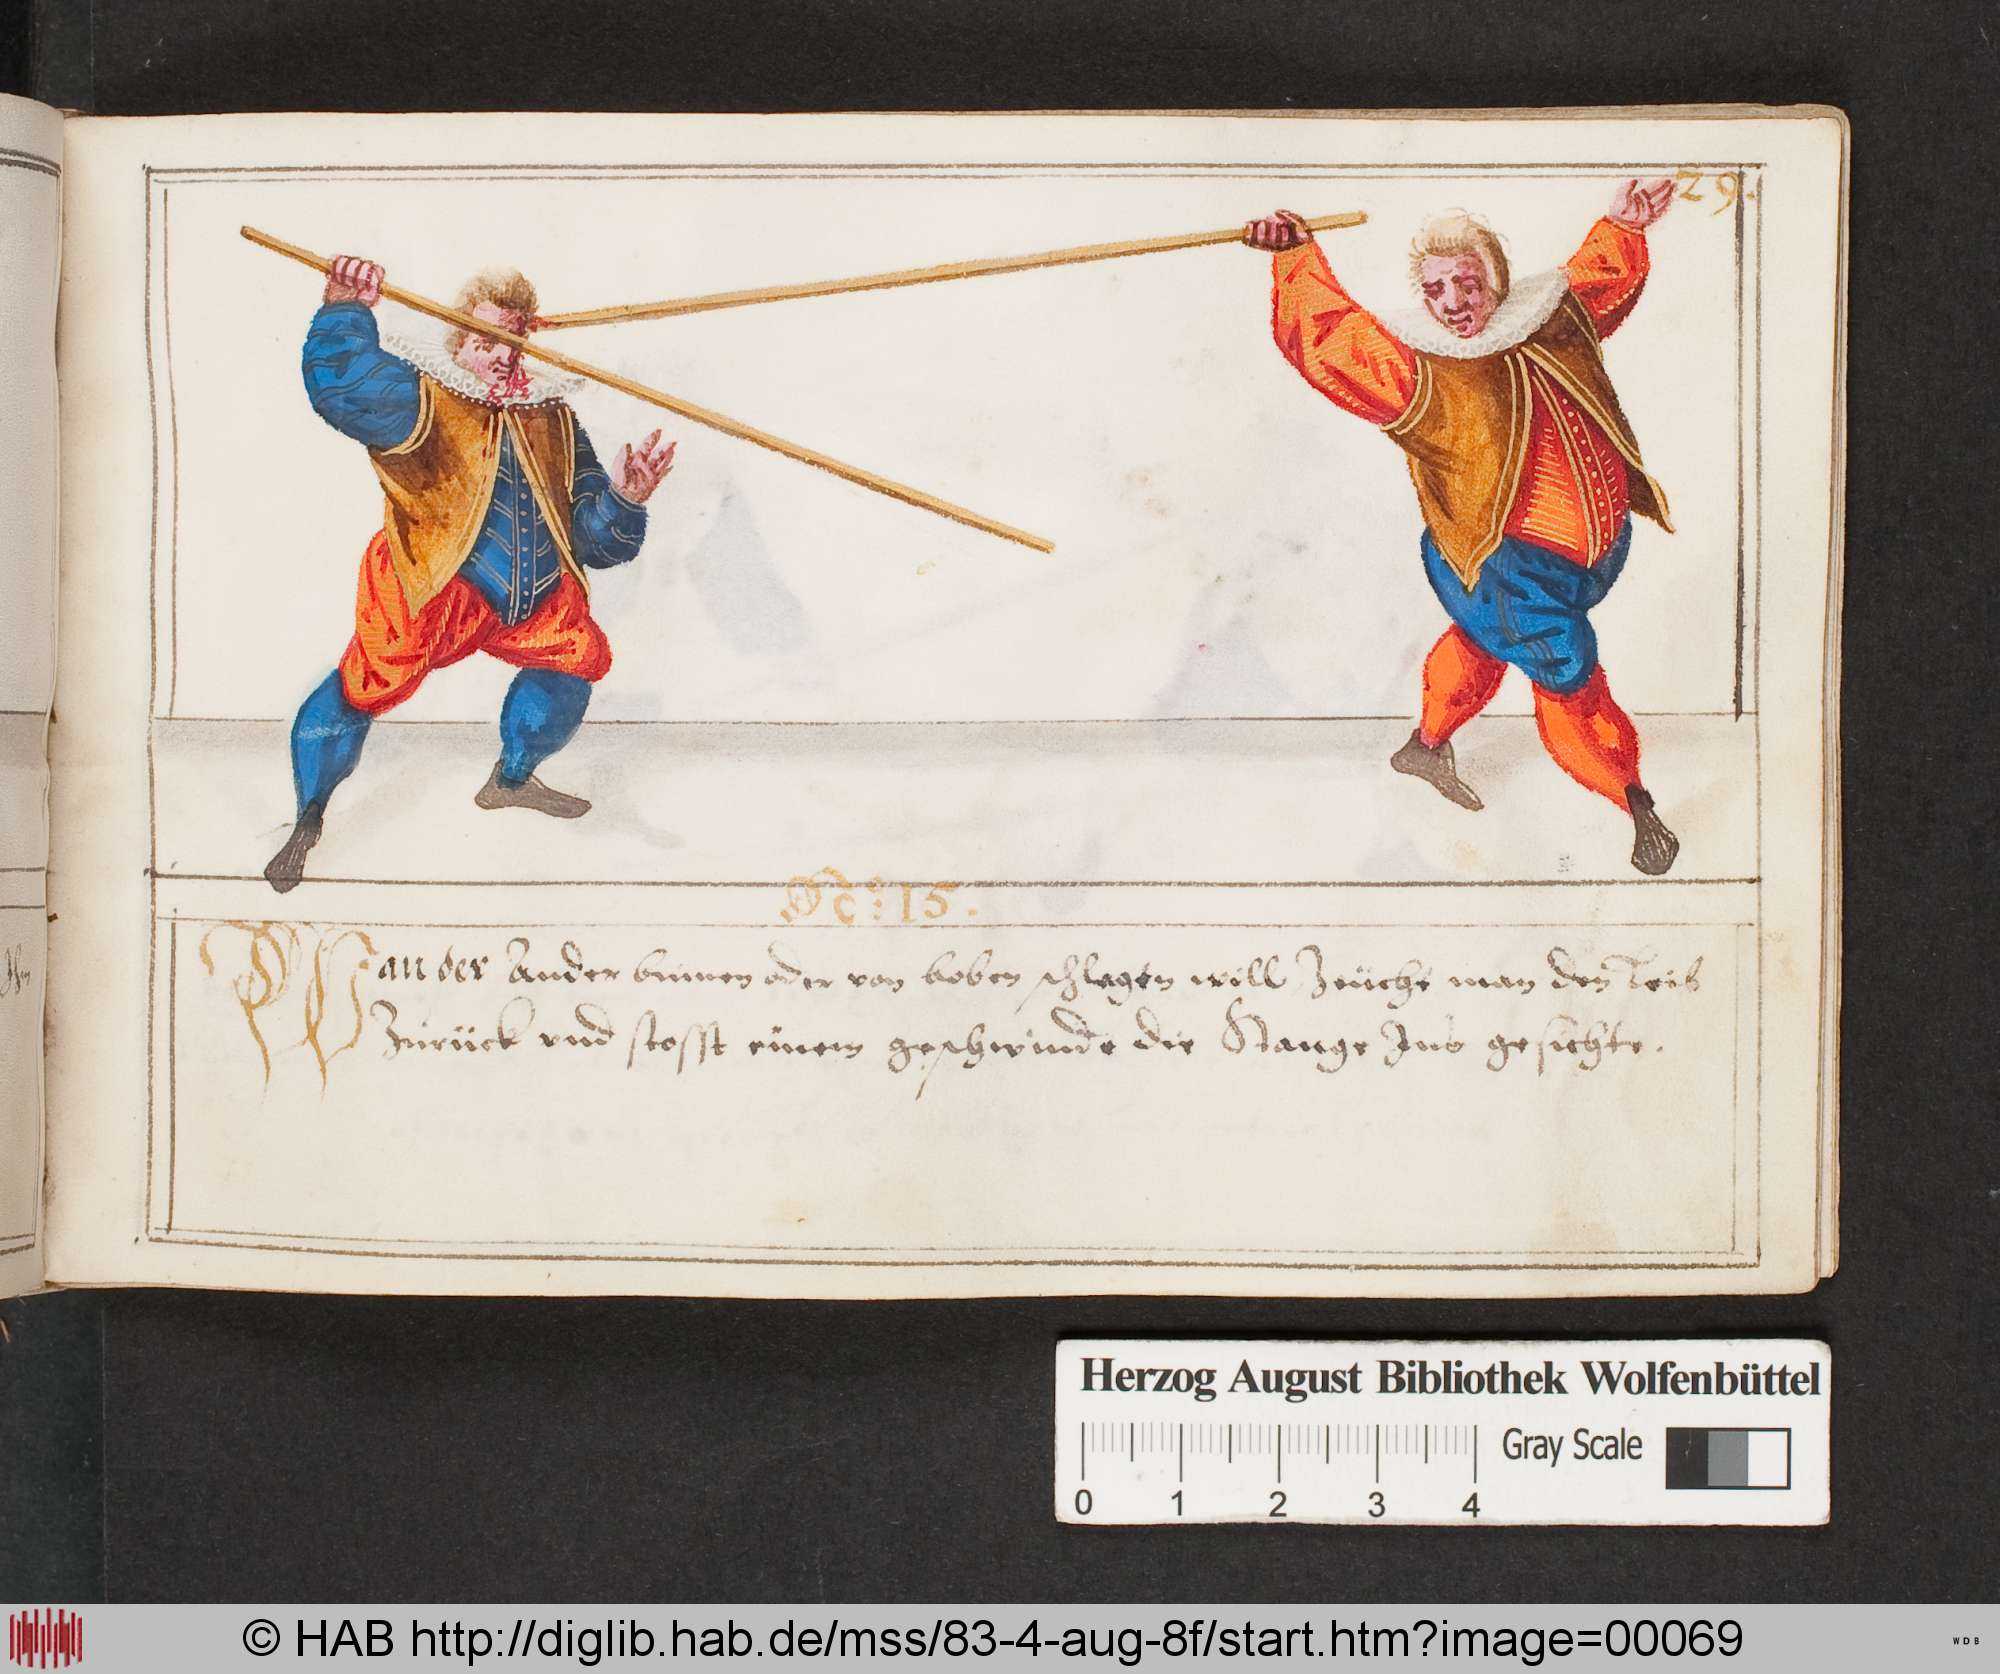 29.
No: 15.
Wan der Ander binnen oder von boben schlagen will Zeücht man den Leib
Zurück vnd stosst einem geschwinde die Stange Ins gesichte.
Herzog August Bibliothek Wolfenbüttel
Gray Scale
0 1 2 3 4
© HAB http://diglib.hab.de/mss/83-4-aug-8f/start.htm?image=00069
WDB